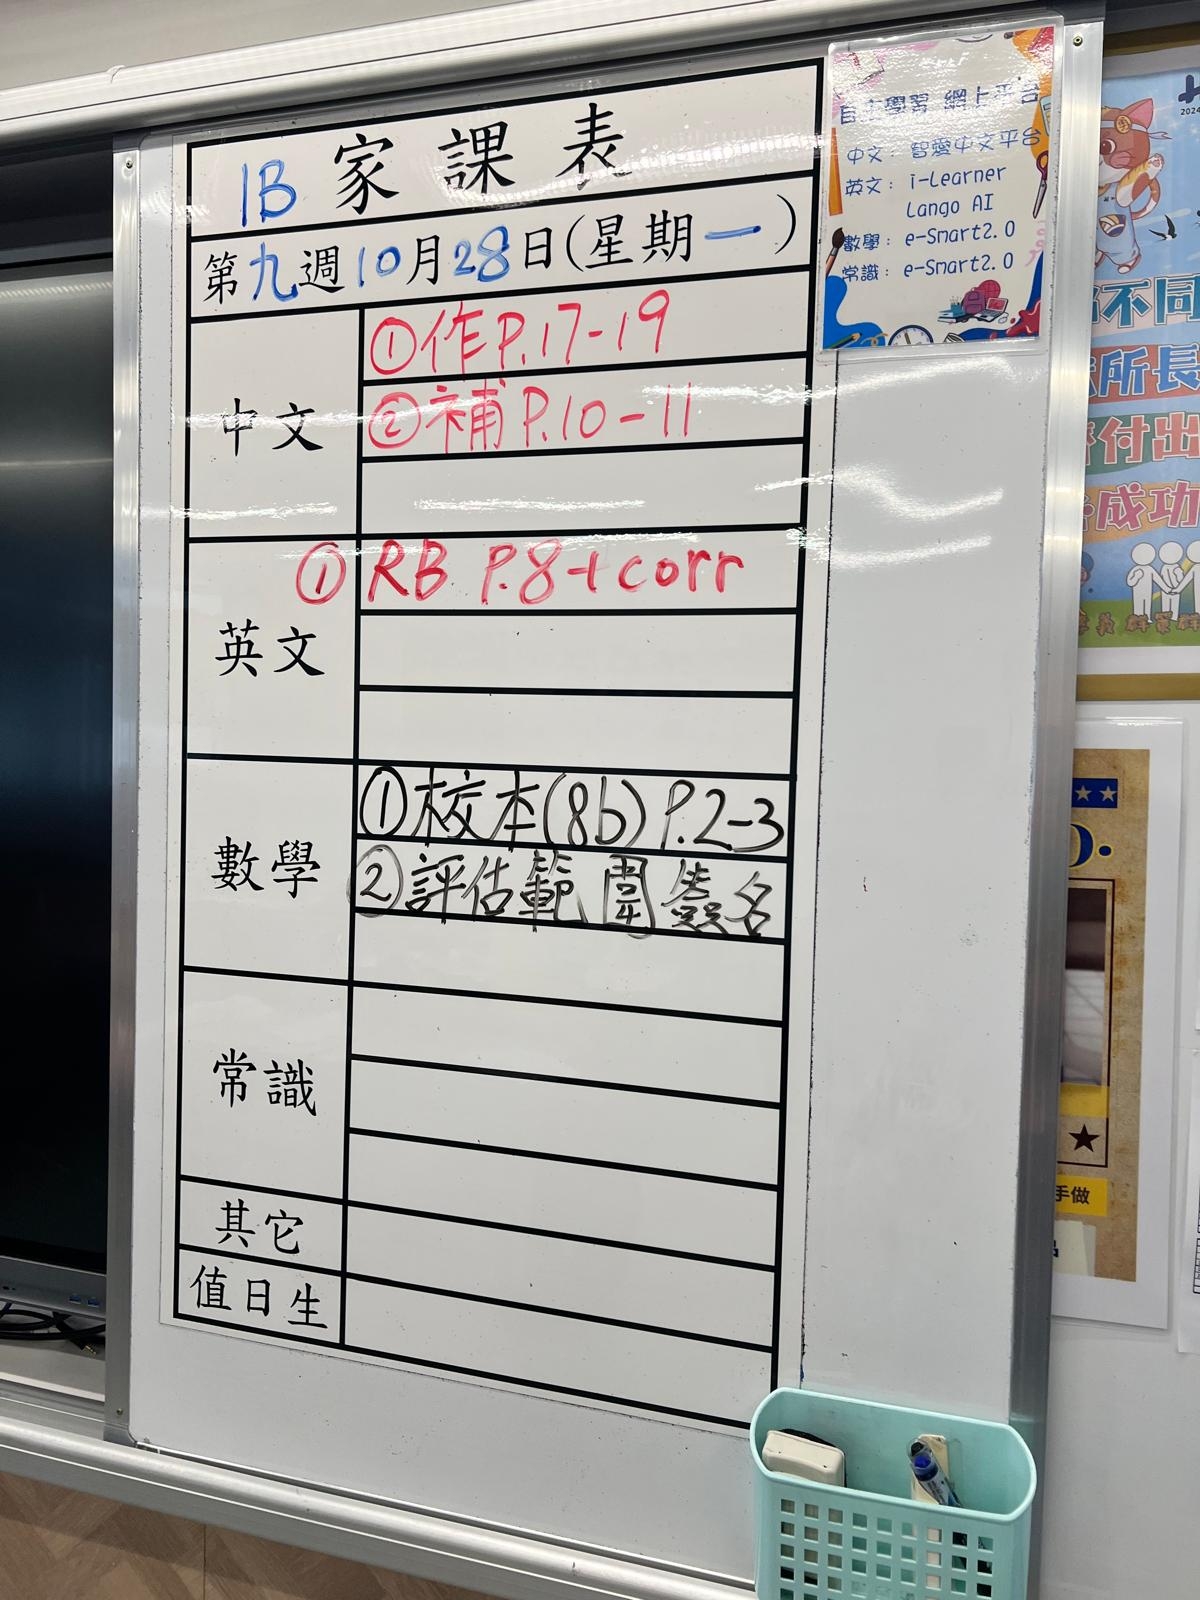 1B 家課表
第九週10月28日(星期一)
中文
①作P.17-19
②補P.10-11
英文
① RB P.8+corr
數學
①校本(8b) P.2-3
②評估範圍簽名
常識
其它
值日生
自主學習 網上平台
中文：智愛中文平台
英文：i-Learner
Lango AI
數學：e-Smart2.0
常識：e-Smart2.0
2024
不同
所長
付出
成功
手做